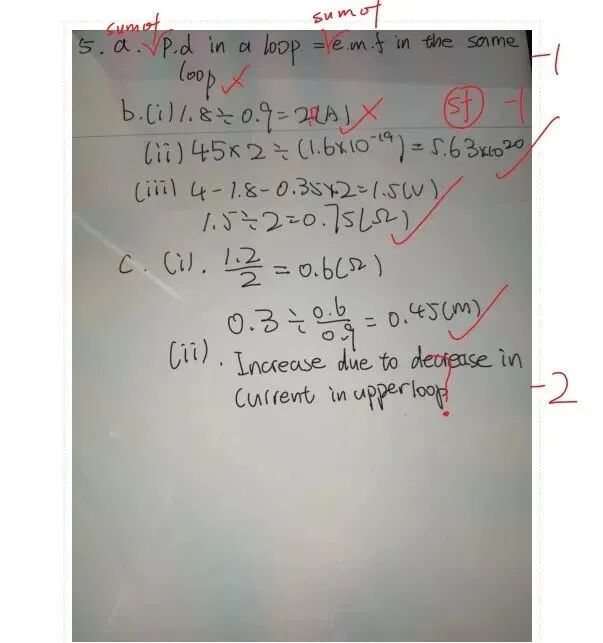 sum of sum of
5. a. P.d in a loop = e.m.f in the same
loop -1
b.(i) 1.8 ÷ 0.9 = 2(A) sf -1
(ii) 45×2÷(1.6×10⁻¹⁹) = 5.63×10²⁰
(iii) 4-1.8-0.35×2=1.5(V)
1.5÷2=0.75(Ω)
c. (i). 1.2/2 = 0.6(Ω)
0.3 ÷ 0.6/0.9 = 0.45(m)
(ii). Increase due to decrease in
current in upper loop! -2